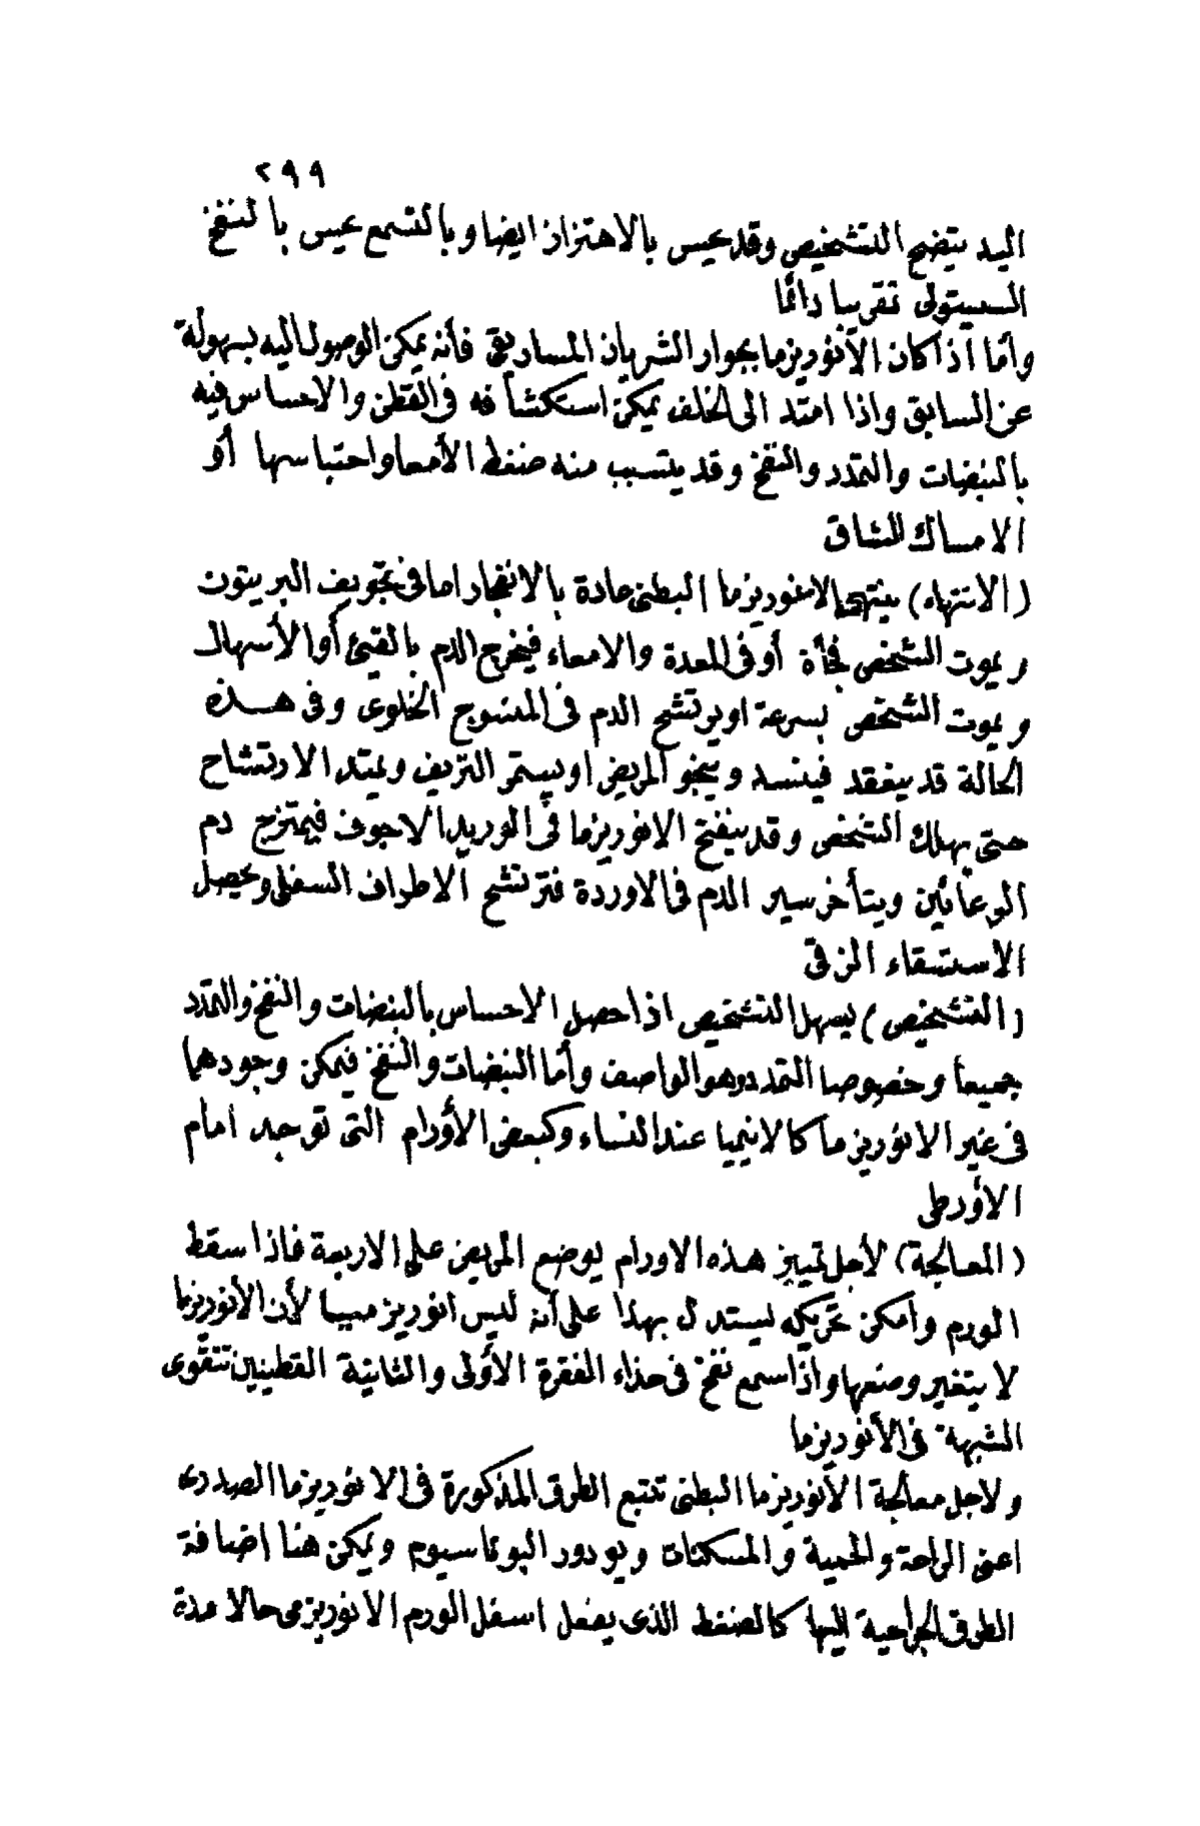 ٢٩٩
اليد يتضح التشخيص وقد يحس بالاهتزاز ايضا وبالتسمع يحس بالنفخ
السيستولى تقريبا دائما
وأما اذا كان الأنوريزما بجوار الشريان المساريقى فأنه يمكن الوصول اليه بسهولة
عن السابق واذا امتد الى الخلف يمكن استكشافه فى القطن والاحساس فيه
بالنبضات والتمدد والنفخ وقد يتسبب منه ضغط الأمعا واحتباسها أو
الامساك الشاق
(الانتهاء) ينتهى الانوريزما البطنى عادة بالانفجار اما فى تجويف البريتون
ويموت الشخص فجأة أو فى المعدة والامعاء فيخرج الدم بالقيئ أو الأسهال
ويموت الشخص بسرعة او يرتشح الدم فى المنسوج الخلوى وفى هذه
الحالة قد ينعقد فينسد وينجو المريض او يستمر النزيف ويمتد الارتشاح
حتى يهلك الشخص وقد ينفتح الانوريزما فى الوريد الاجوف فيمتزج دم
الوعائين ويتأخر سير الدم فى الاوردة فترتشح الاطراف السفلى ويحصل
الاستسقاء الزقى
(التشخيص) يسهل التشخيص اذا حصل الاحساس بالنبضات والنفخ والتمدد
جميعا وخصوصا التمدد وهو الواصف وأما النبضات والنفخ فيمكن وجودهما
فى غير الانوريزما كالانيميا عند النساء وكبعض الأورام التى توجد امام
الأورطى
(المعالجة) لأجل تمييز هذه الاورام يوضع المريض على الاربعة فاذا سقط
الورم وامكن تحريكه يستدل بهذا على أنه ليس انوريزميا لأن الأنوريزما
لا يتغير وضعها واذا سمع نفخ فى حذاء الفقرة الأولى والثانية القطنيين تتقوى
الشبهة فى الأنوريزما
ولاجل معالجة الأنوريزما البطنى تتبع الطرق المذكورة فى الانوريزما الصدرى
اعنى الراحة والحمية والمسكنات ويودور البوتاسيوم ويمكن هنا اضافة
الطرق الجراحية اليها كالضغط الذى يفعل اسفل الورم الانوريزمى حالا مدة